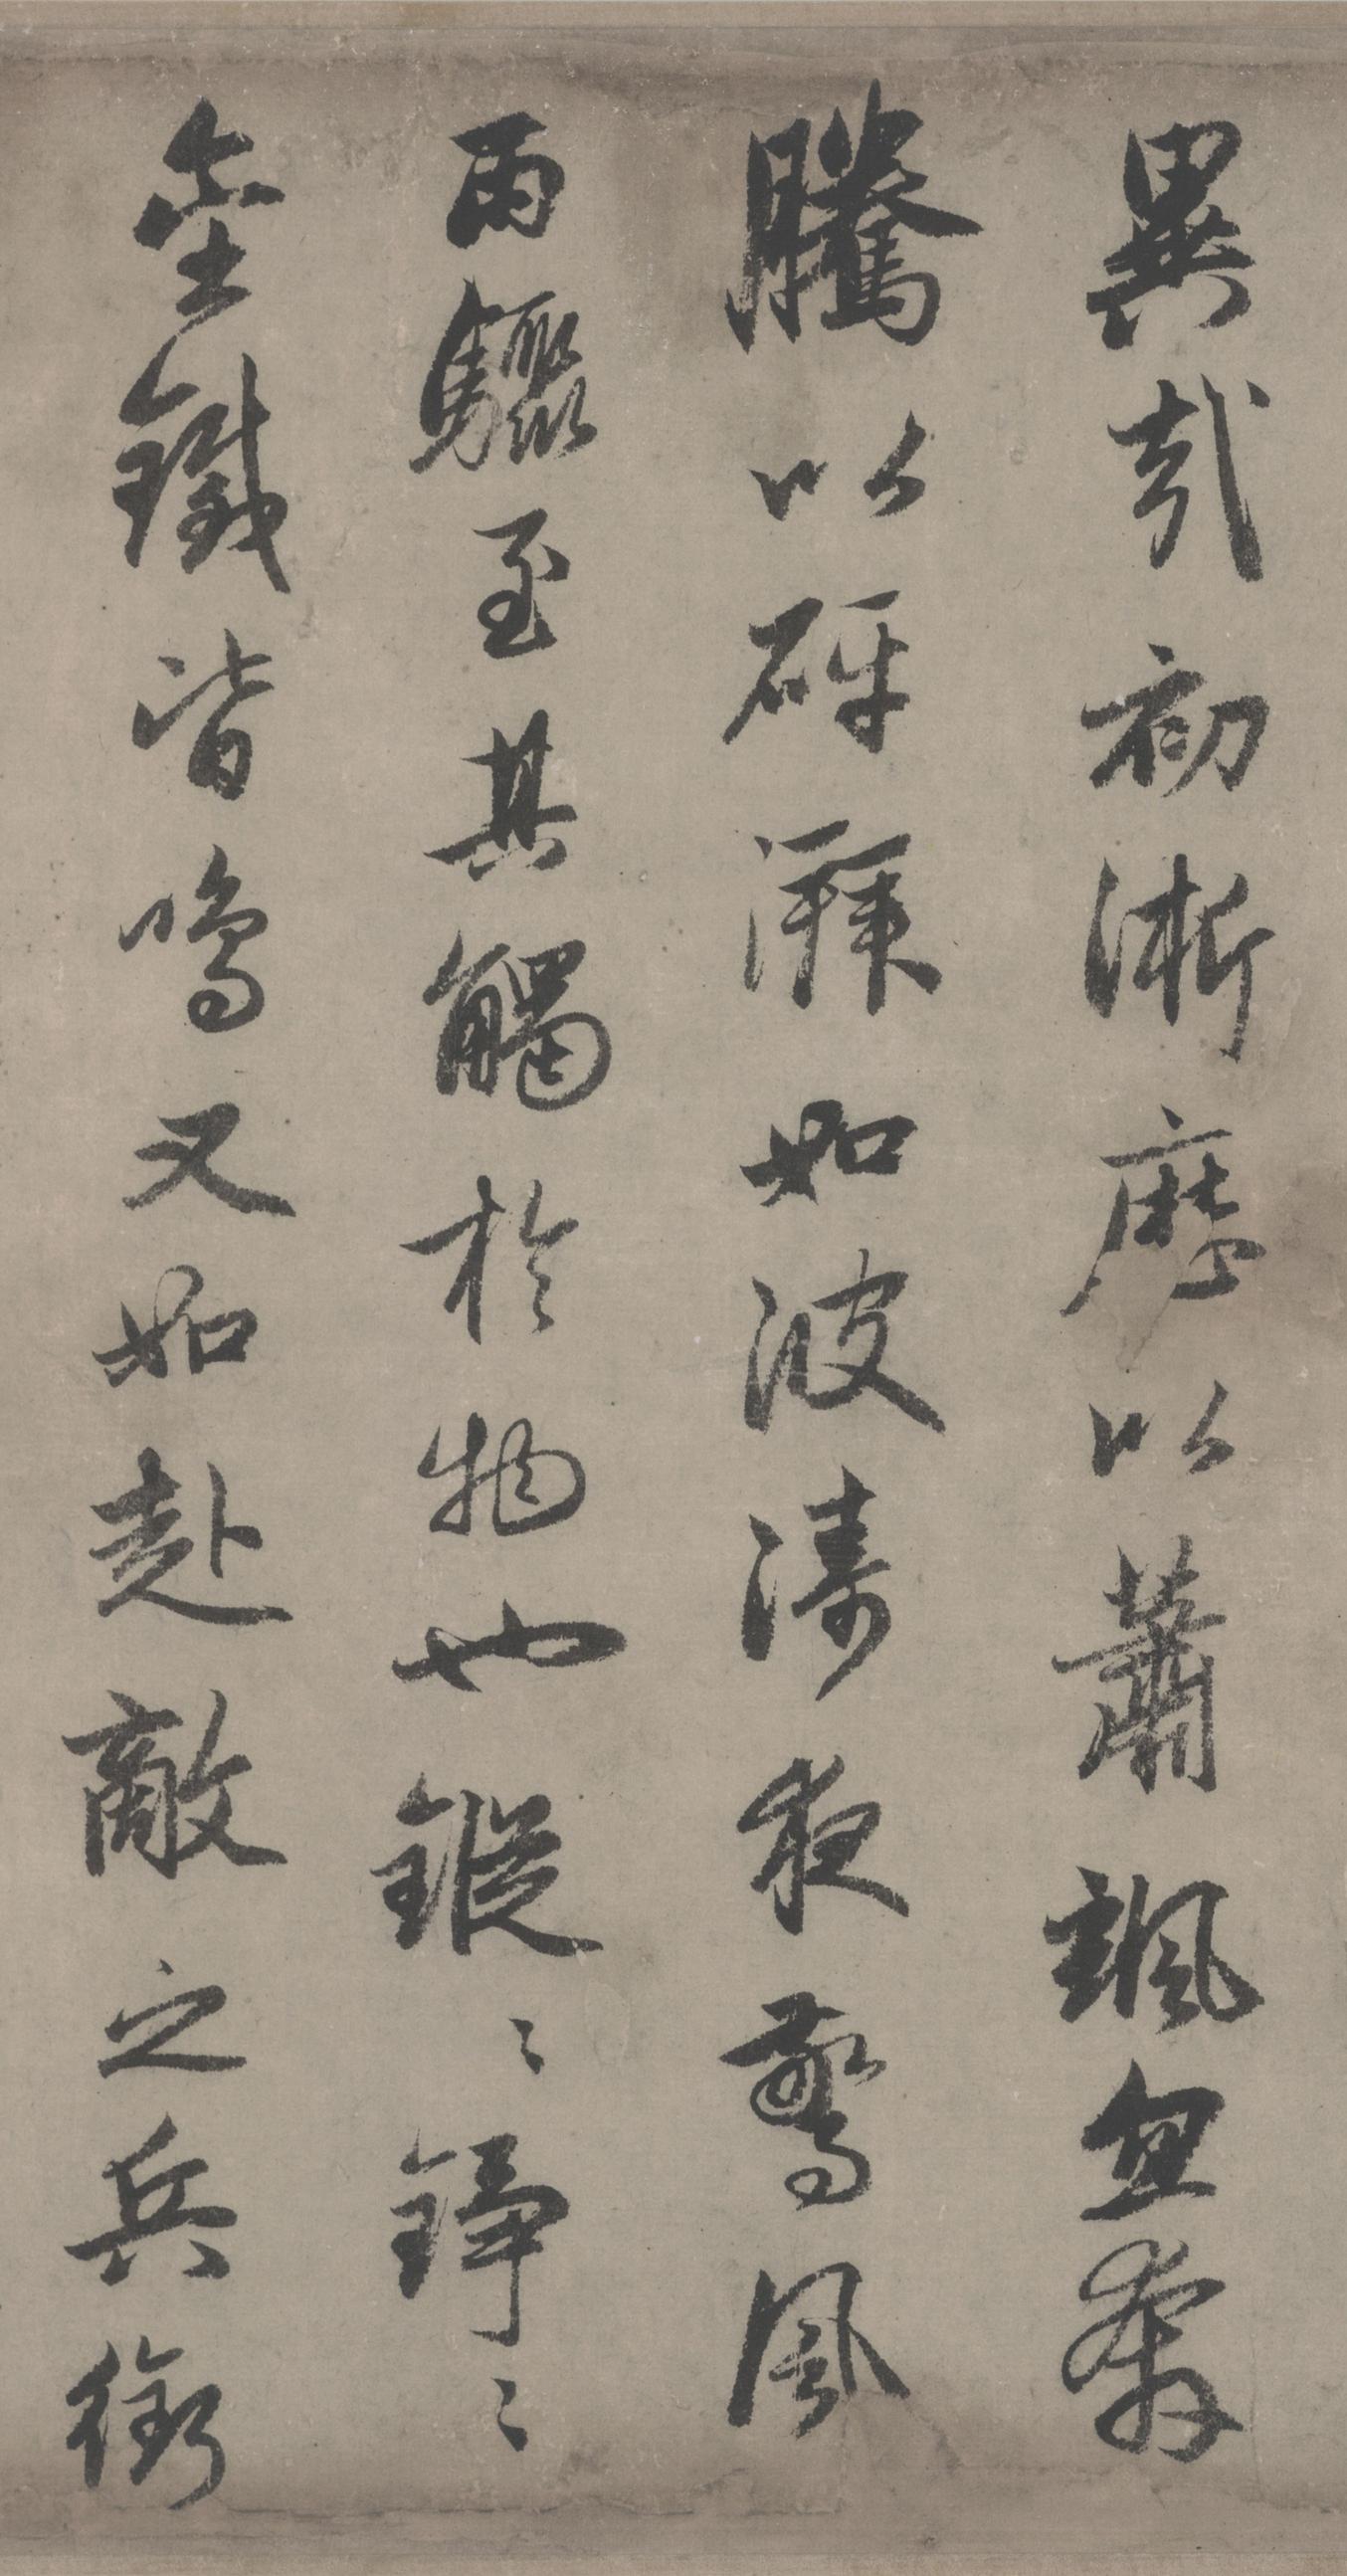 異哉初淅歷以蕭颯忽奔
騰以砰湃如波濤夜驚風
雨驟至其觸於物也鏦〻錚〻
金鐵皆鳴又如赴敵之兵銜